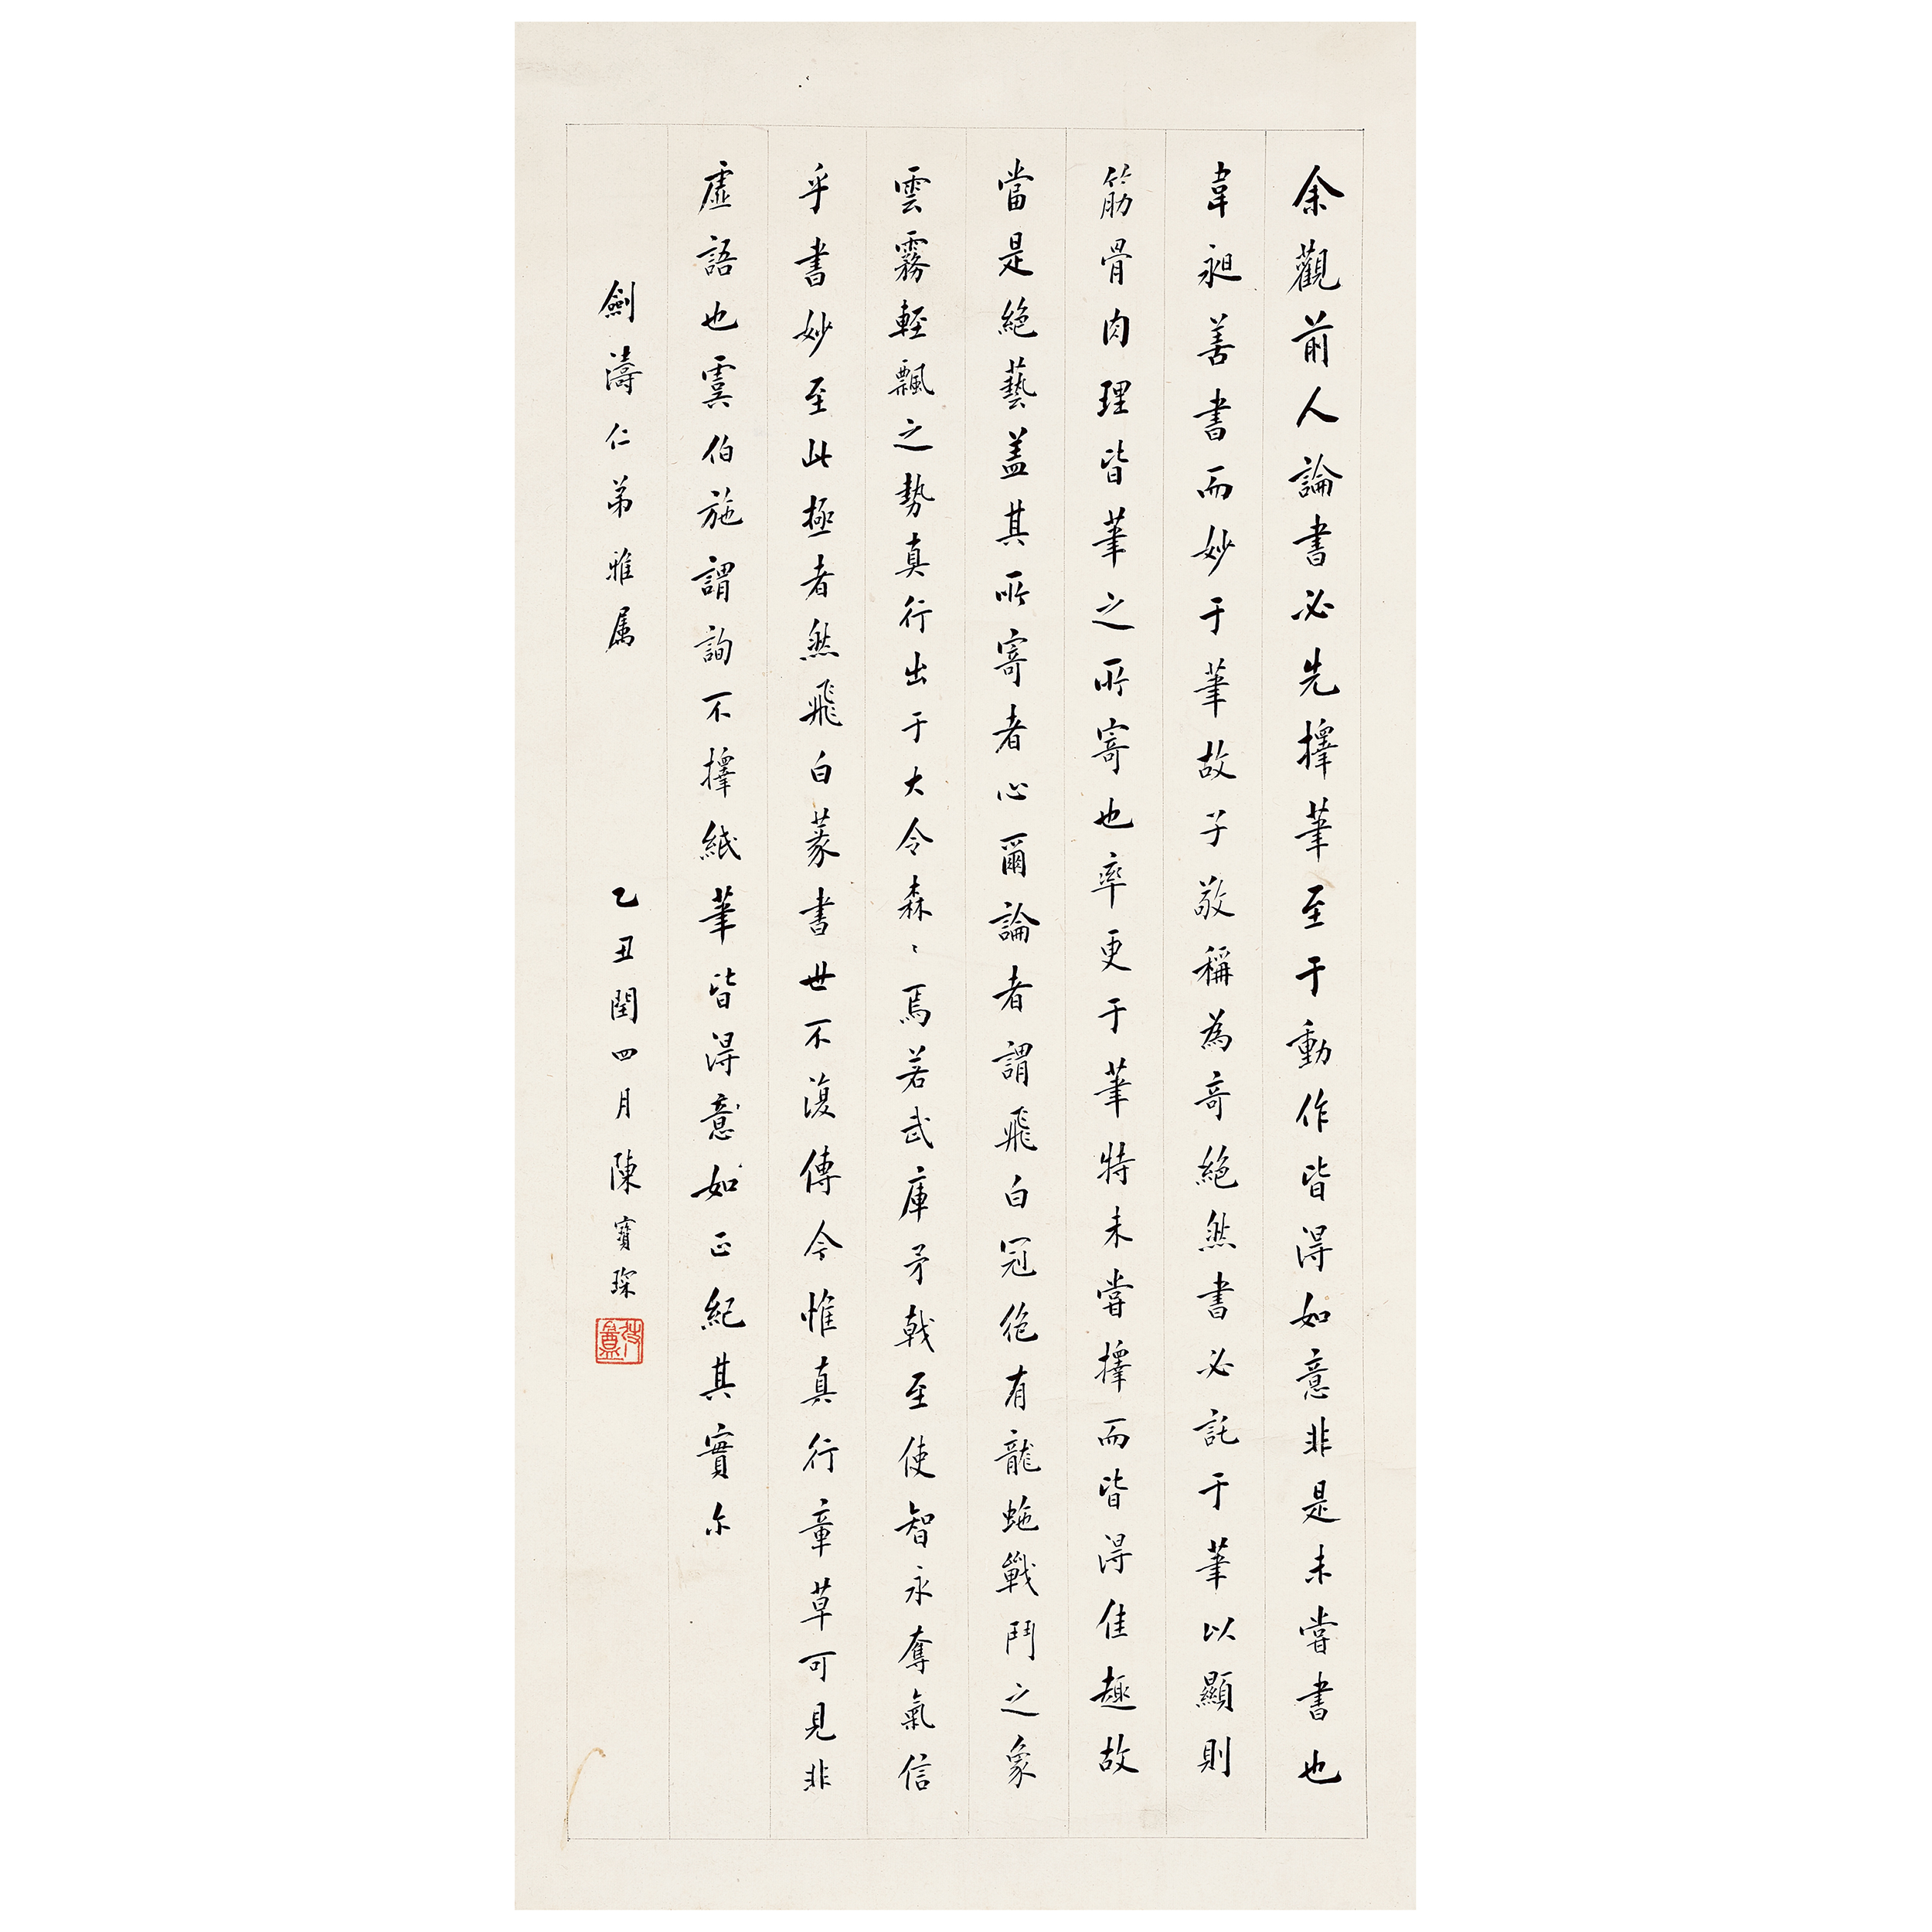 余觀前人論書必先擇筆至于動作皆得如意非是未嘗書也
韋昶善書而妙于筆故子敬稱為奇絕然書必託于筆以顯則
筋骨肉理皆筆之所寄也率更于筆特未嘗擇而皆得佳趣故
當是絕藝蓋其所寄者心爾論者謂飛白冠絕有龍蛇戰鬥之象
雲霧輕飄之勢真行出于大令森〻焉若武庫矛戟至使智永奪氣信
乎書妙至此極者然飛白篆書世不復傳今惟真行章草可見非
虛語也虞伯施謂詢不擇紙筆皆得意如正紀其實尔
劍濤仁弟雅屬
乙丑閏四月陳寶琛